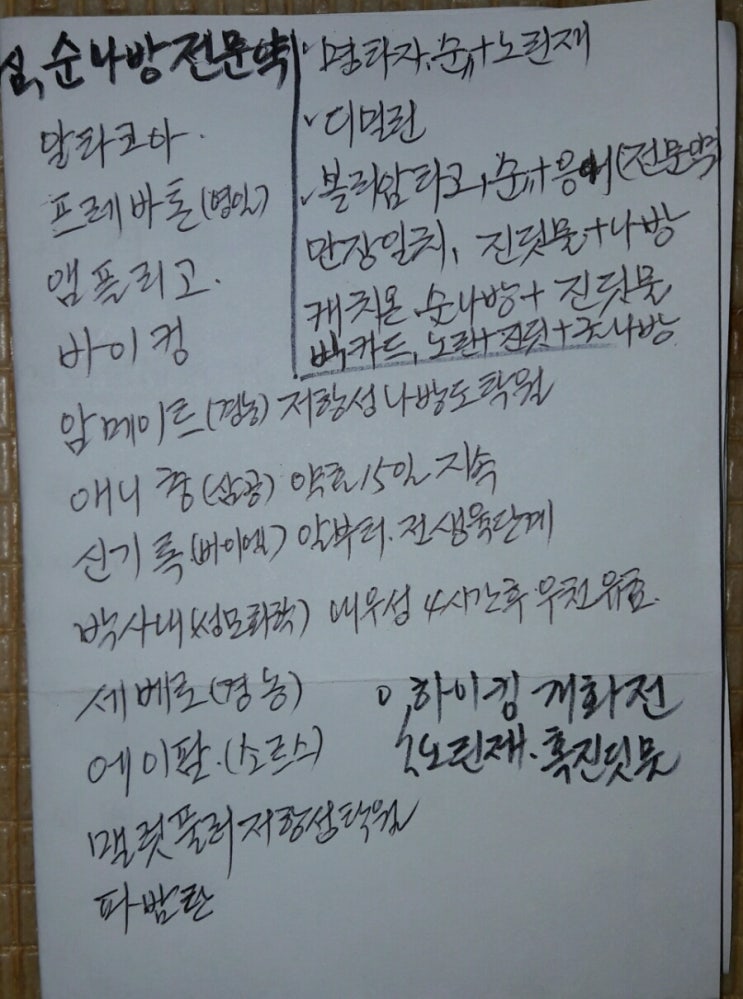 심, 순나방전문약
알타코아.
프레바톤(영일)
앰플리고.
바이킹
명타자, 순+노린재
디밀린
볼리암타코, 순+응애(전문약)
만장일치, 진딧물+나방
캐치온 순나방+진딧물
빅카드, 노린+진딧+순나방
암메이트(경농) 저항성나방도탁월
애니충(삼공) 약효15일지속
신기록(바이엘) 알부터.전생육단계
박사내(성모화학) 내우성 4시간후 우천유효.
세베로(경농)
에이팜.(소르스)
매럿풀러저항성탁월
파밤탄
0, 하이킹 개화전
노린재.흑진딧물